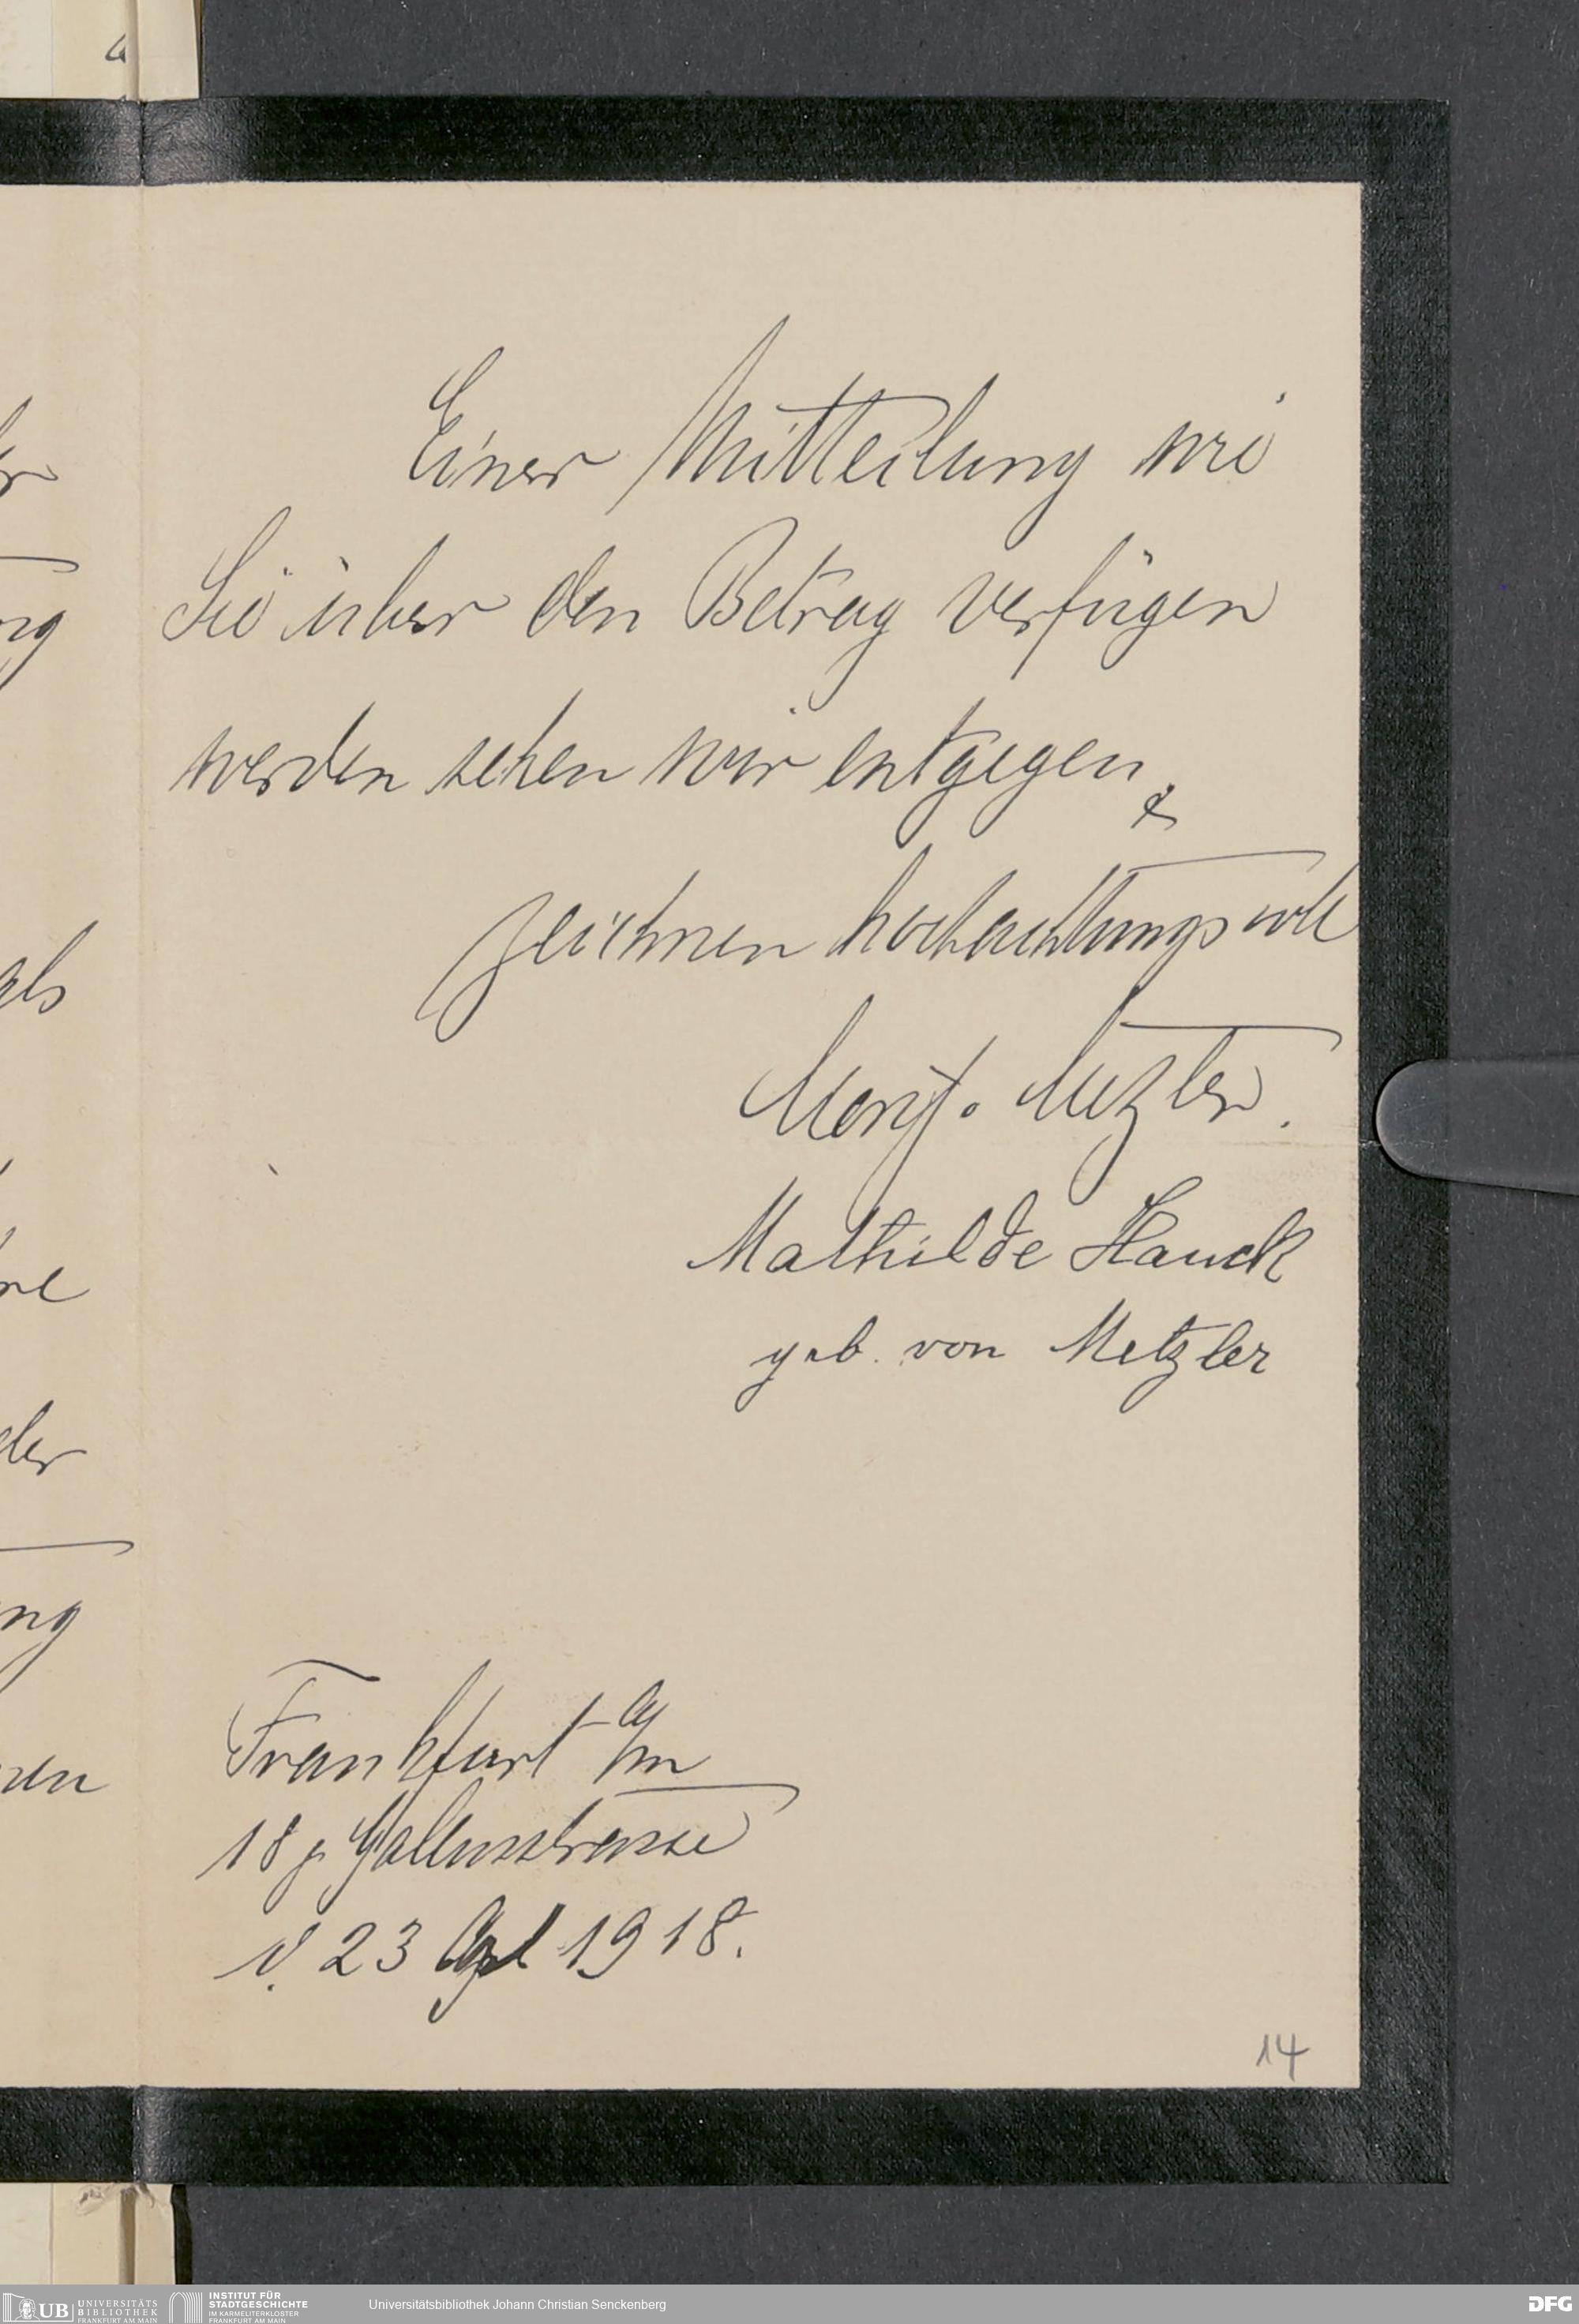 Einer Mitteilung wie
Sie über den Betrag verfügen
werden sehen wir entgegen &
zeichnen hochachtungsvoll
Metzler.
Mathilde Hauck
geb. von Metzler
Frankfurt a/m
18 Gallusstrasse
d. 23 Apl 1918.
14
als
der
UB UNIVERSITÄTS
BIBLIOTHEK
FRANKFURT AM MAIN
INSTITUT FÜR
STADTGESCHICHTE
IM KARMELITERKLOSTER
FRANKFURT AM MAIN
Universitätsbibliothek Johann Christian Senckenberg
DFG